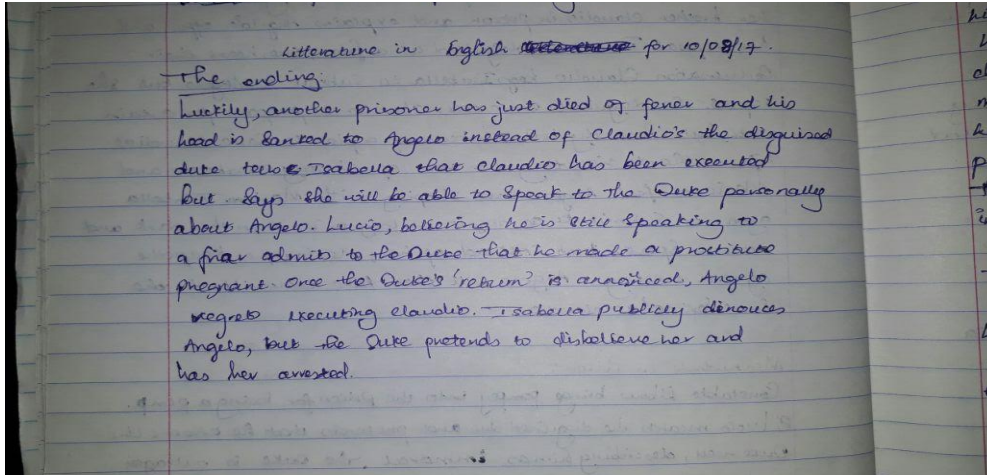 Litterature in English for 10/08/17.
The ending
Luckily, another prisoner has just died of fever and his
head is Sanked to Angelo instead of Claudio's the disguised
duke tells Isabella that Claudio has been executed
but Says she will be able to Speak to the Duke personally
about Angelo. Lucio, believing he is still Speaking to
a friar admits to the Duke that he made a prostitute
pregnant. Once the Duke's 'return' is announced, Angelo
regrets executing Claudio. Isabella publicly denouces
Angelo, but the Duke pretends to disbelieve her and
has her arrested.